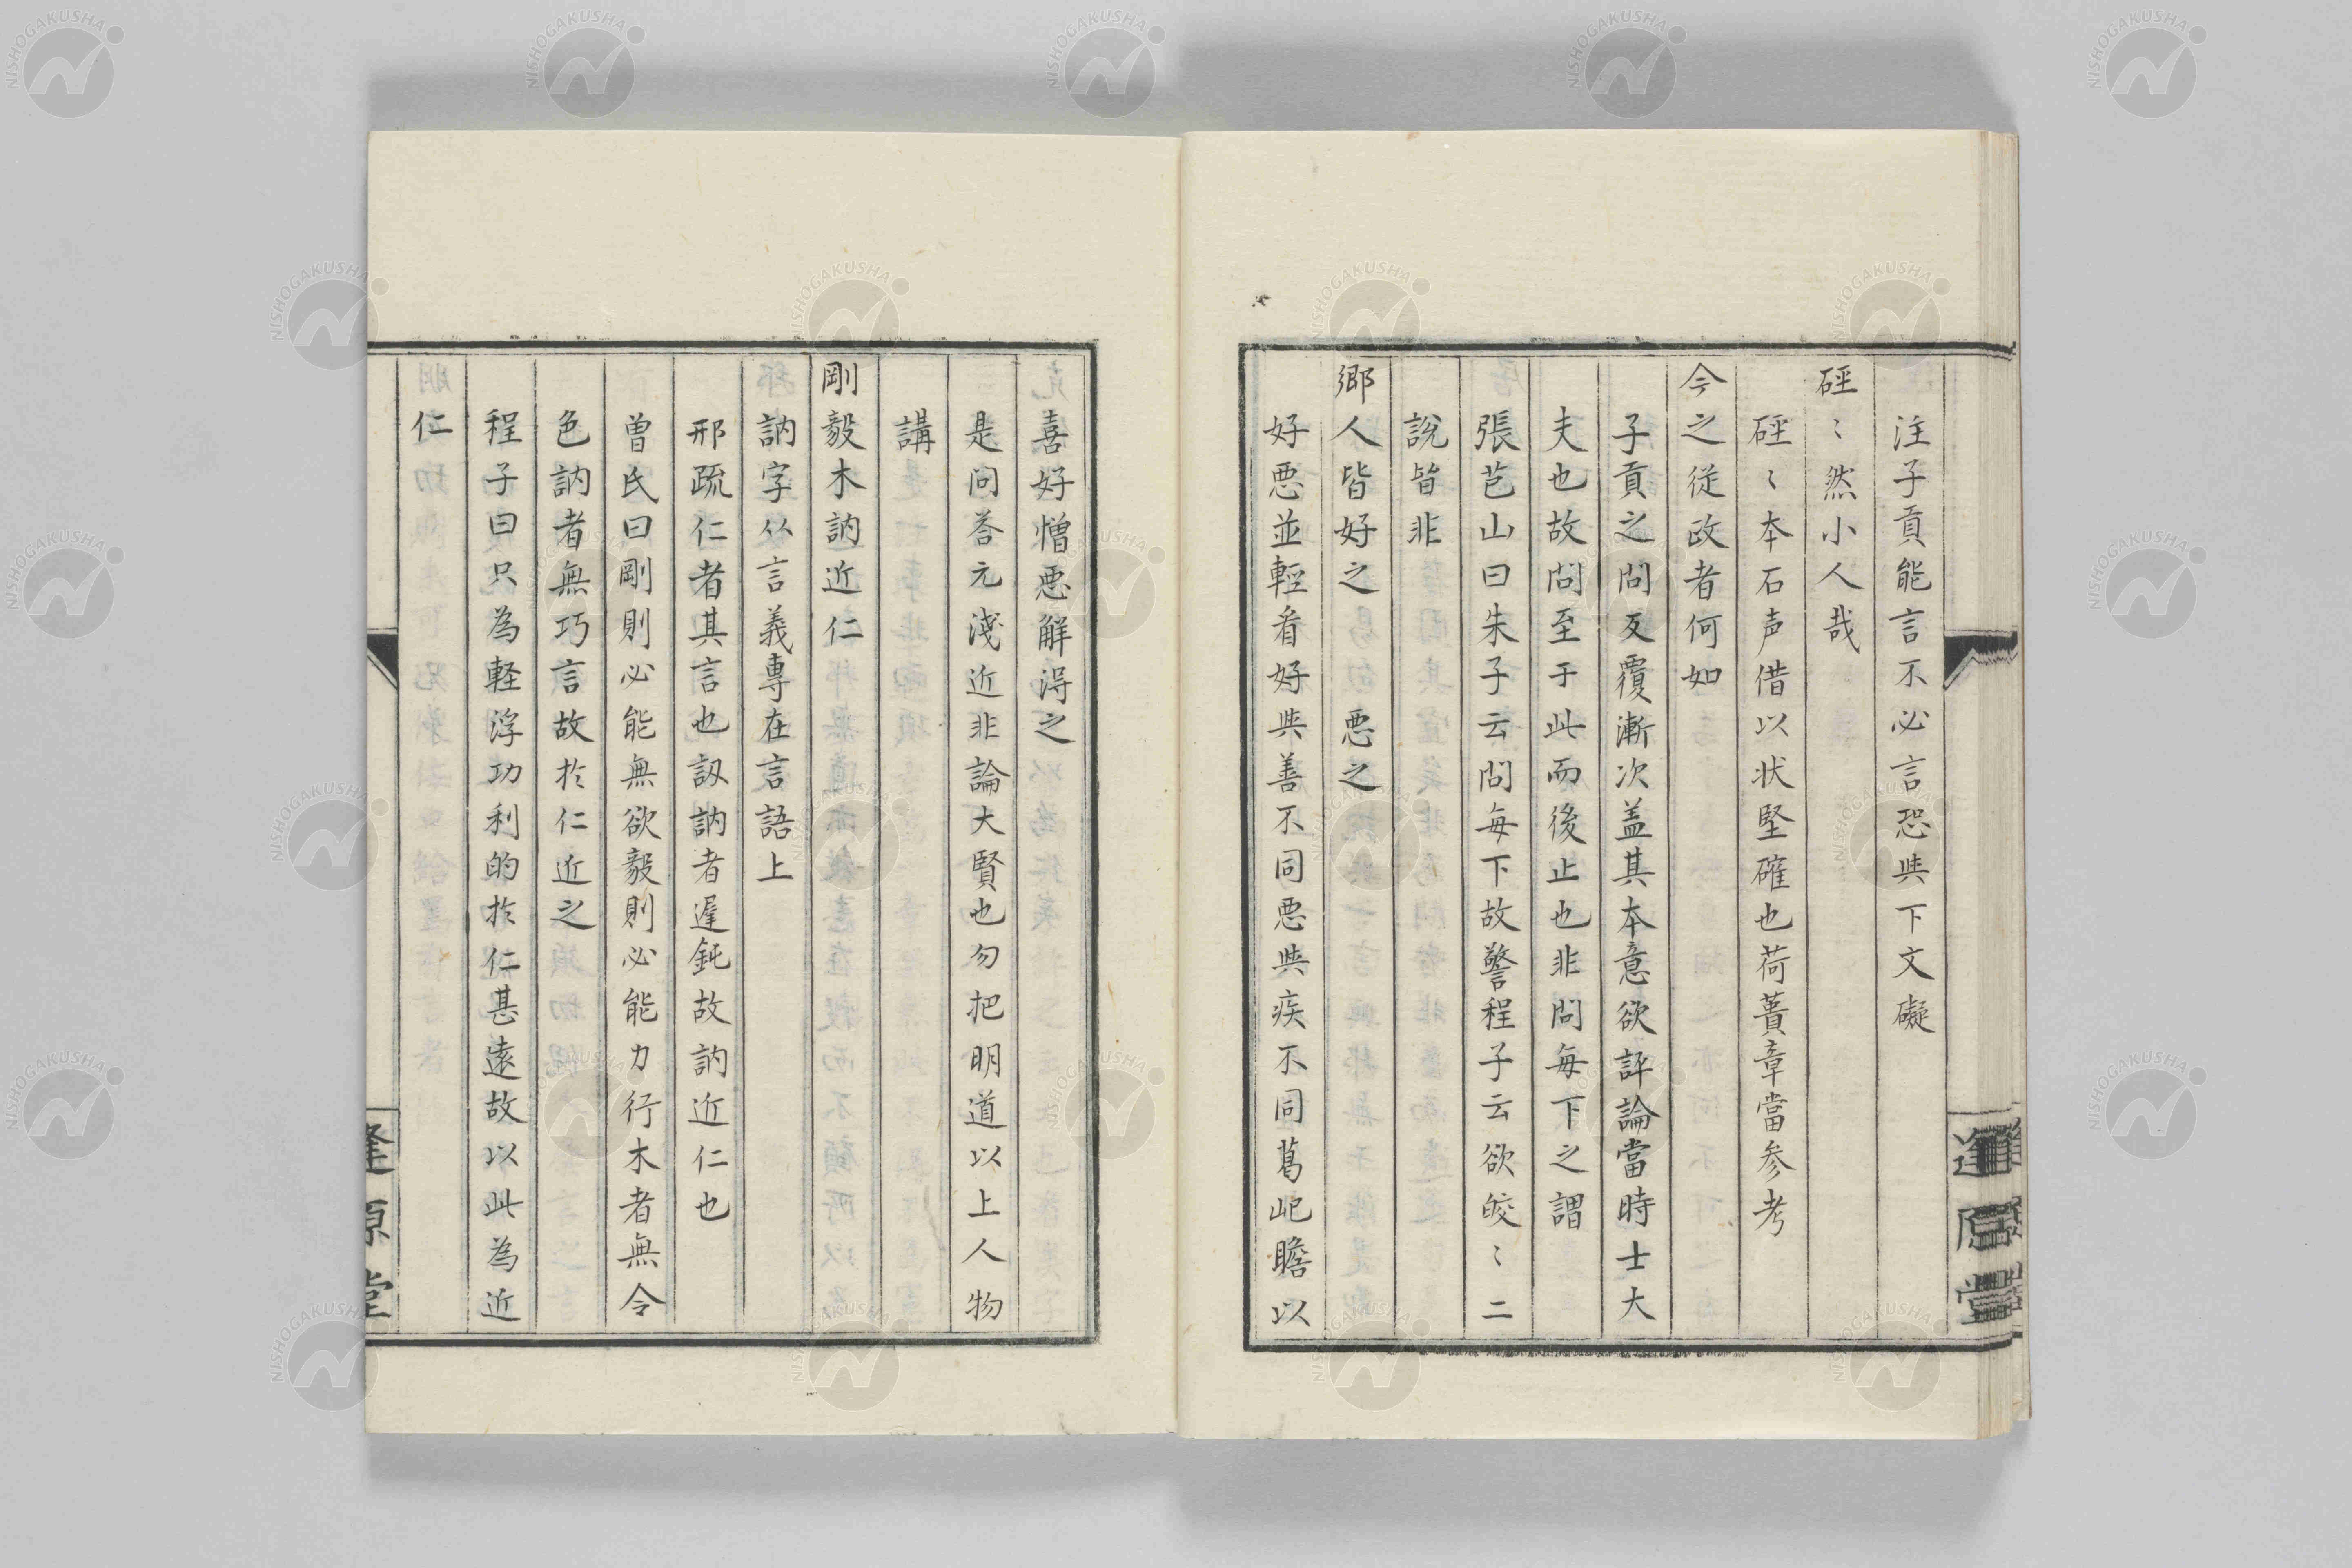 注子貢能言不必言恐與下文礙
硜〻然小人哉
硜〻本石声借以状堅確也荷蕢章當参考
今之従政者何如
子貢之問反覆漸次盖其本意欲評論當時士大
夫也故問至于此而後止也非問毎下之謂
張芑山曰朱子云問毎下故警程子云欲皎〻二
說皆非
郷人皆好之 悪之
好悪並輕看好與善不同悪與疾不同葛屺瞻以
喜好憎悪解淂之
是問荅元淺近非論大賢也勿把明道以上人物
講
剛毅木訥近仁
訥字从言義專在言語上
邢疏仁者其言也訒訥者遲鈍故訥近仁也
曽氏曰剛則必能無欲毅則必能力行木者無令
色訥者無巧言故於仁近之
程子曰只為軽浮功利的於仁甚遠故以此為近
仁
逢原堂
NISHOGAKUSHA